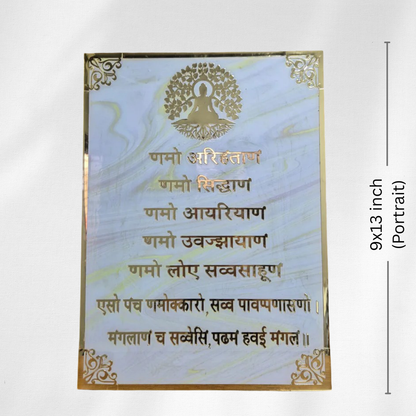 णमो अरिहंताणं
णमो सिद्धाणं
णमो आयरियाणं
णमो उवज्झायाणं
णमो लोए सव्वसाहूणं
एसो पंच णमोक्कारो, सव्व पावप्पणासणो।
मंगलाणं च सव्वेसिं, पढमं हवई मंगलं॥
9x13 inch
(Portrait)